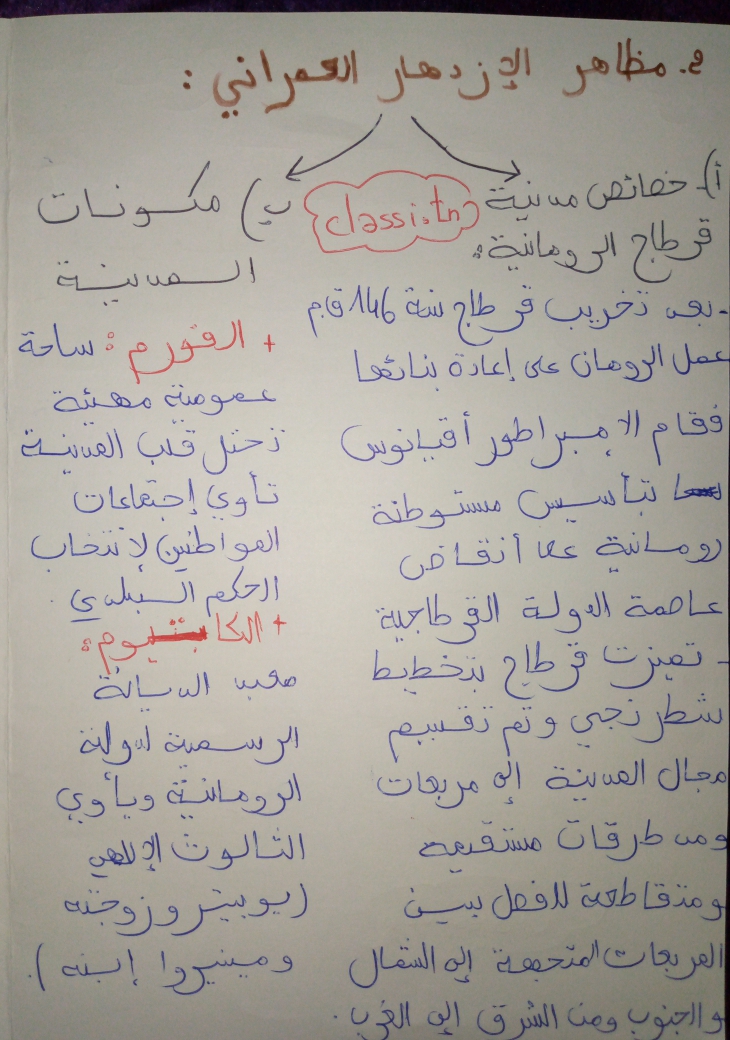 2. مظاهر الإزدهار العمراني :
أ)- خصائص مدينة
قرطاج الرومانية :
- بعد تخريب قرطاج سنة 146 ق م
عمل الرومان على إعادة بنائها
فقام الإمبراطور أقيانوس
بتأسيس مستوطنة
رومانية على أنقاض
عاصمة الدولة القرطاجية
- تميزت قرطاج بتخطيط
شطرنجي وتم تقسيم
مجال المدينة إلى مربعات
ومد طرقات مستقيمة
ومتقاطعة للفصل بين
المربعات المتجهة إلى الشمال
والجنوب ومن الشرق إلى الغرب.
classi.tn
ب) مكونات
المدينة
+ الفورم : ساحة
عمومية مهيئة
تحتل قلب المدينة
تأوي إجتماعات
المواطنين لإنتخاب
الحكم البلدي.
+ الكابتيوم :
معبد الديانة
الرسمية لدولة
الرومانية ويأوي
الثالوث الإلاهي
(يوبيتر وزوجته
ومينيروا إبنه).